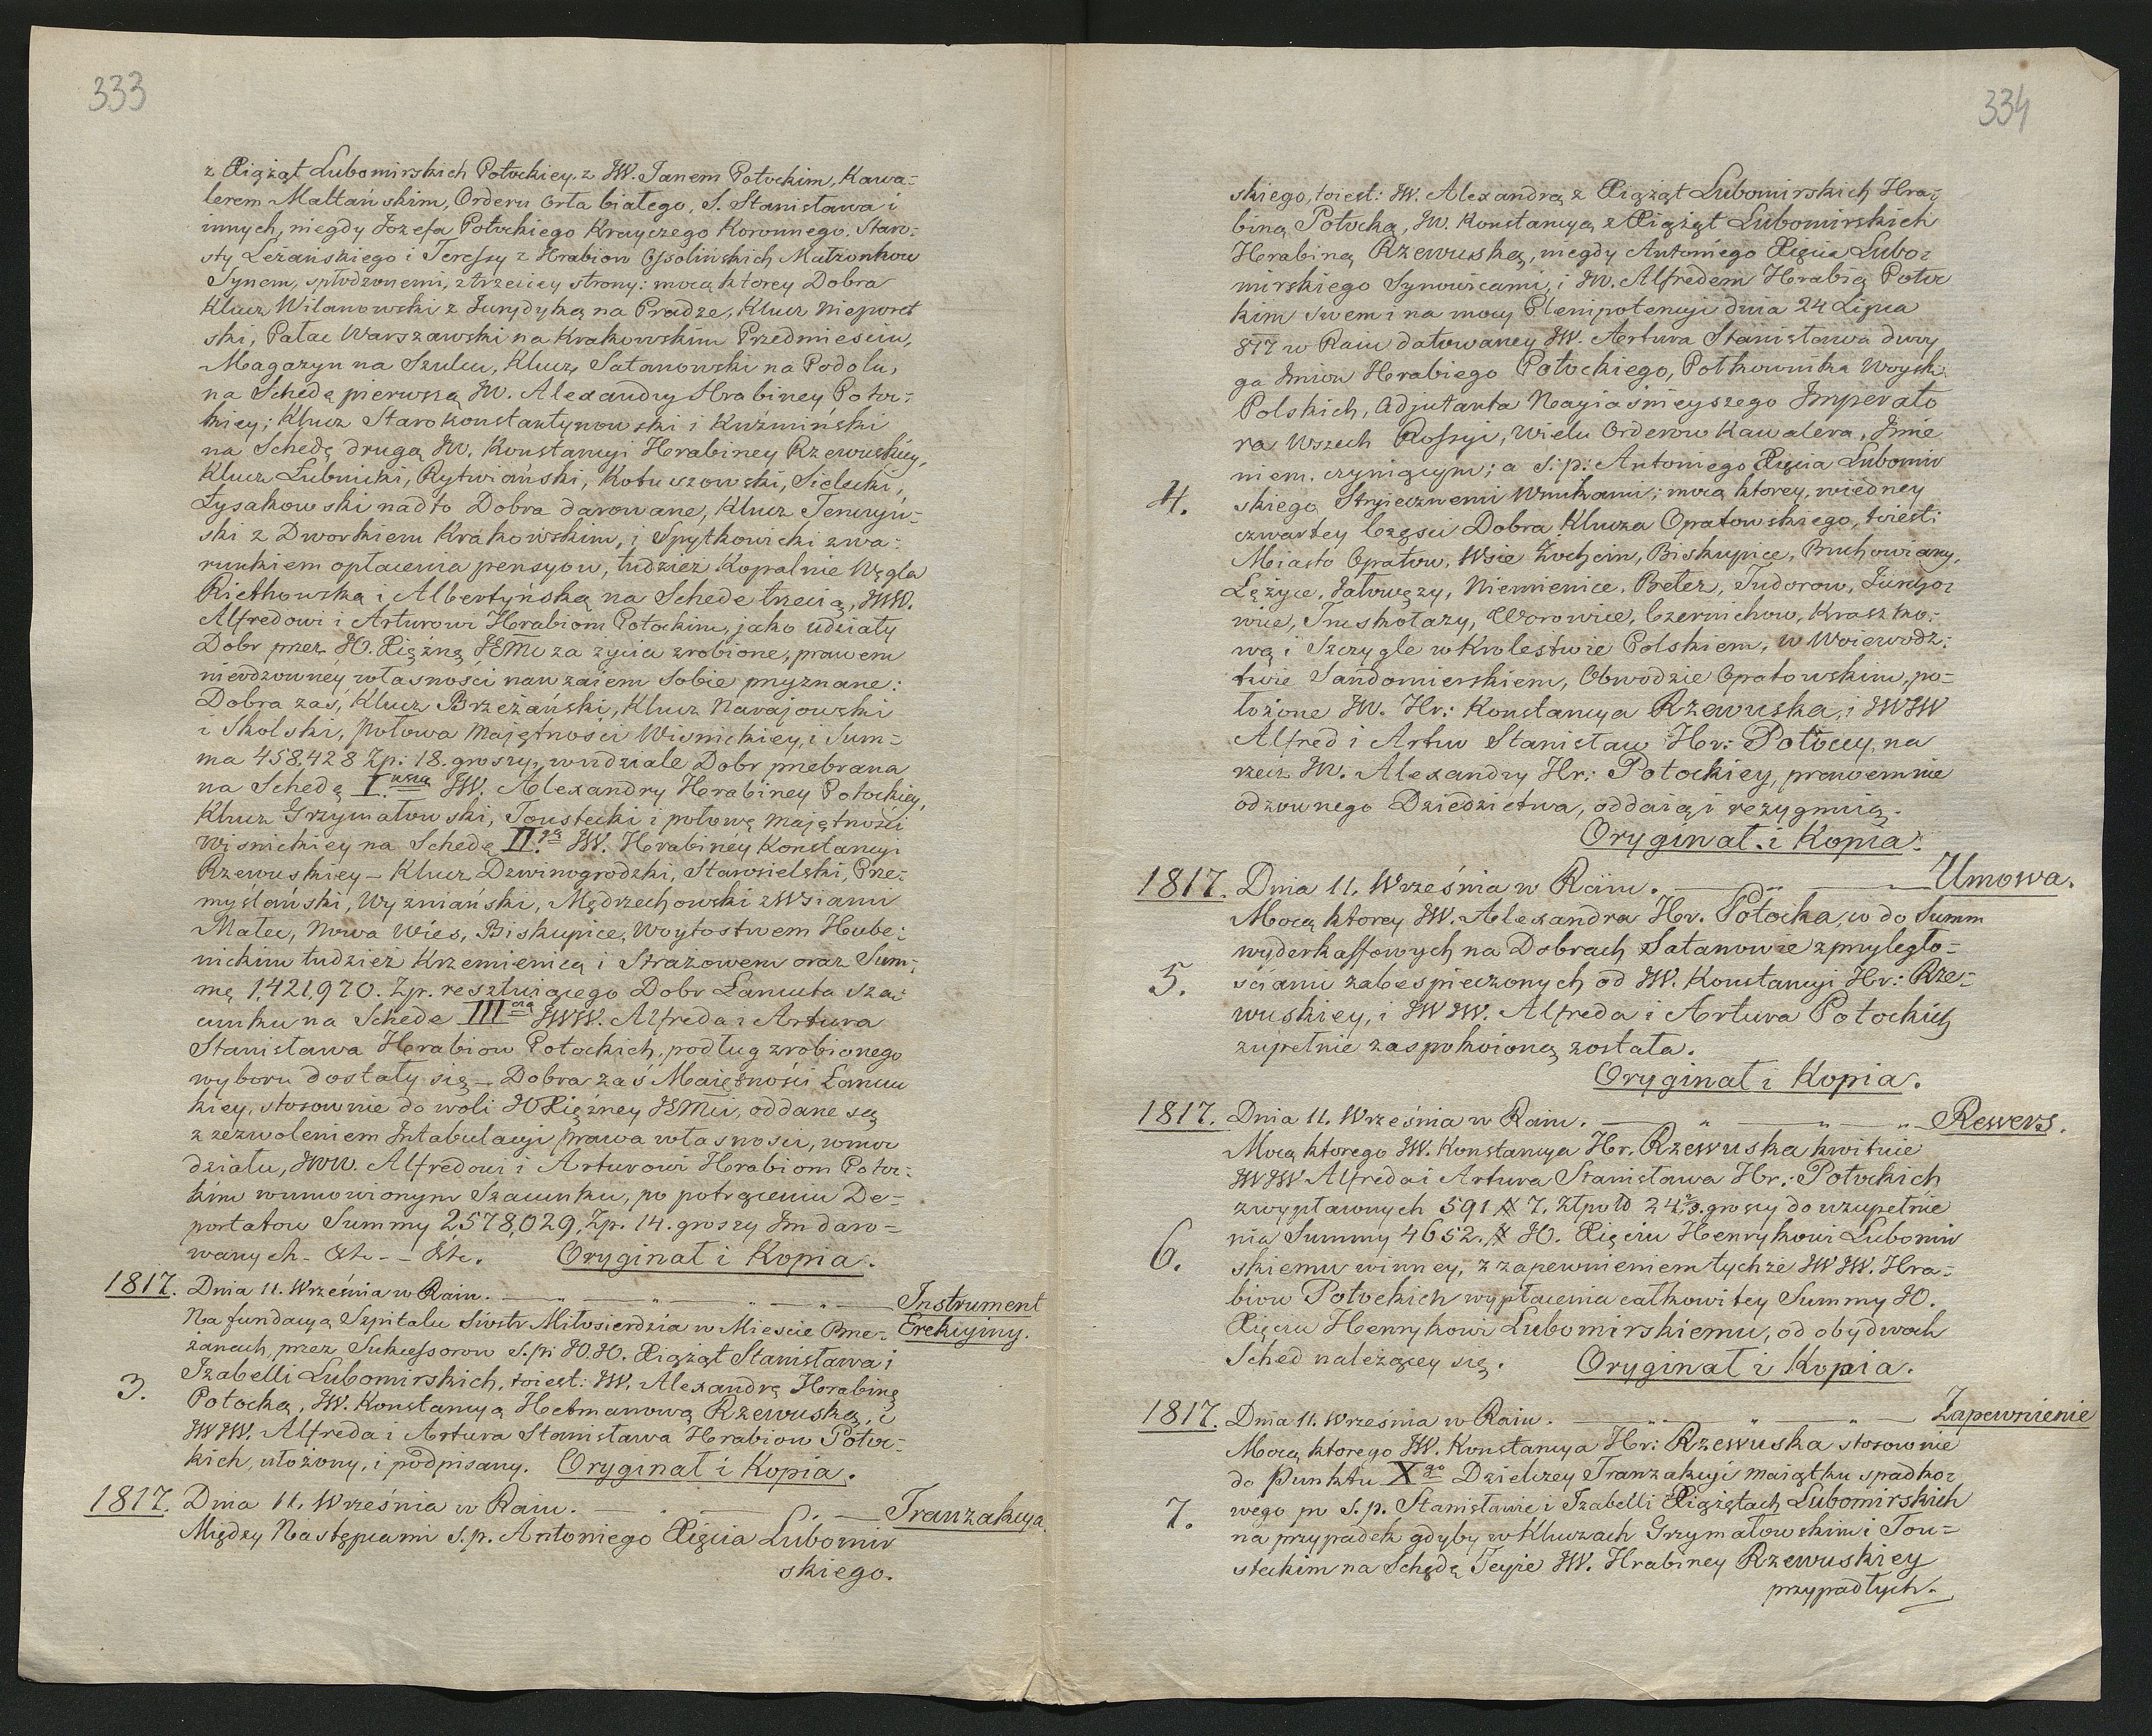 333
z Xiążąt Lubomirskich Potockiey z JW. Janem Potockim, Kawa-
lerem Maltańskim, Orderu Orła białego, S. Stanisława i
innych, niegdy Jozefa Potockiego Krayczego Koronnego, Staro-
sty Leżańskiego i Teressy z Hrabiow Ossolińskich Małżonkow
Synem, spłodzonemi, z trzeciey strony: mocą ktorey Dobra
Klucz Wilanowski z Jurydyką na Pradze, Klucz Nieporet
ski, Pałac Warszawski na Krakowskim Przedmiesciu,
Magazyn na Szulcu, Klucz Satanowski na Podolu,
na Schedę pierwszą JW. Alexandry Hrabiney Potoc-
kiey; Klucz Starokonstantynowski i Kuźmiński
na Schedę drugą JW. Konstancyi Hrabiney Rzewuskiey,
Klucz Łubnicki, Rytwiański, Kotuszowski, Sielecki,
Łysakowski nadto Dobra darowane, Klucz Tenczyń-
ski z Dworkiem Krakowskim, i Spytkowicki z wa-
runkiem opłacenia pensyow, tudzież Kopalnie Węgla
Riethowską i Albertyńską na Schedę trzecią, JWW.
Alfredowi i Arturowi Hrabiom Potockim, jako udziały
Dobr przez JO. Xiężnę JEMć za życia zrobione, prawem
nieodzowney własności nawzaiem Sobie przyznane:
Dobra zaś, Klucz Brzeżański, Klucz Narajowski
i Skolski, połowa Majętności Wisnickiey, i Sum-
ma 458,428 Zp: 18. groszy, w udziale Dobr przebrana
na Schedę I.wszą JW. Alexandry Hrabiney Potockiey,
Klucz Grzymałowski, Toustecki i połowę Majętności
Wisnickiey na Schedę II.gą JW. Hrabiney Konstancyi
Rzewuskiey – Klucz Dzwinogrodzki, Starosielski, Prze-
myślański, Wyżniański, Mędrzechowski z Wsiami
Malec, Nowa Wieś, Biskupice, Woytostwem Hube-
nickim tudzież Krzemienicą i Strażowem oraz Sum-
mę 1,421,970. Zp. resztuiącego Dobr Łancuta sza-
cunku na Schedę III.cią JWW. Alfreda i Artura
Stanisława Hrabiow Potockich, podług zrobionego
wyboru dostały się – Dobra zaś Maiętności Łancu
kiey, stosownie do woli JO Xiężney JEMci, oddane są
z zezwoleniem Intabulacyi prawa własnosci, w moc
działu, JWW. Alfredowi i Arturowi Hrabiom Potoc-
kim w umowionym Szacunku, po potrąceniu De-
portatow Summy 2,578,029, Zp. 14. groszy Im daro-
wanych – &tc – – &tc. Oryginał i Kopia.
1817. Dnia 11. Września w Raiu. Instrument
Na fundacyą Szpitalu Siostr Miłosierdzia w Miescie Brze- Erekcyiny.
żanach, przez Sukcessorow S.p: JO JO. Xiążąt Stanisława i
Izabelli Lubomirskich, toiest: JW. Alexandrę Hrabinę
3. Potocką, JW. Konstancyą Hetmanową Rzewuską, i
JWJW. Alfreda i Artura Stanisława Hrabiow Potoc-
kich, ułożony, i podpisany. Oryginał i Kopia.
1817. Dnia 11. Września w Raiu. Tranzakcya
Między Następcami s.p. Antoniego Xięcia Lubomir
skiego.
334
skiego, toiest: JW. Alexandrą z Xiążąt Lubomirskich Hra-
biną Potocką, JW. Konstancyą z Xiążąt Lubomirskich
Hrabiną Rzewuską, niegdy Antoniego Xięcia Lubo-
mirskiego Synowicami, i JW. Alfredem Hrabią Potoc
kim Swem i na mocy Plenipotencyi dnia 24 Lipca
817 w Raiu datowaney JW. Artura Stanisława dwoy
ga Imion Hrabiego Potockiego, Połkownika Woysk
Polskich, Adjutanta Nayiaśnieyszego Imperato
ra Wszech Rossyi, wielu Orderow Kawalera, Imie
niem czyniącym; a s.p: Antoniego Xięcia Lubomir
4. skiego Stryiecznemi Wnukami; mocą ktorey, w iedney
czwartey Częsci Dobra Klucza Opatowskiego, toiest:
Miasto Opatow, Wsie Zochcin, Biskupice, Bruchowiany,
Lężyce, Jałowęzy, Niemienice, Beter, Tudorow, Jurygo-
wice, Truskolazy, Worowice, Czernichow, Kraszko-
wą i Szczygle w Krolestwie Polskiem, w Woiewodz-
twie Sandomierskiem, Obwodzie Opatowskim, po-
łożone JW. Hr: Konstancya Rzewuska, i JWJW
Alfred i Artur Stanisław Hr: Potoccy, na
rzecz JW. Alexandry Hr: Potockiey, prawem nie
odzownego Dziedzictwa, oddaią i rezygnuią.
Oryginał i Kopia.
1817. Dnia 11. Września w Raiu. Umowa.
Mocą ktorey JW. Alexandra Hr. Potocka, co do Summ
wyderkaffowych na Dobrach Satanowie z przyległo-
5. ściami zabespieczonych od JW. Konstancyi Hr: Rze-
wuskiey, i JWJW. Alfreda i Artura Potockich
zupełnie zaspokoioną została.
Oryginał i Kopia.
1817. Dnia 11. Września w Raiu. Rewers.
Mocą ktorego JW. Konstancya Hr. Rzewuska kwituie
JWJW Alfreda i Artura Stanisława Hr: Potockich
z wypłaconych 591 # 7. Złpold 24 2/3. groszy do uzupełnie
nia Summy 4652. # JO. Xięciu Henrykowi Lubomir
6. skiemu winney, z zapewnieniem tychże JWJW. Hra-
biow Potockich wypłacenia całkowitey Summy JO.
Xięciu Henrykowi Lubomirskiemu, od obydwoch
Sched należącey się. Oryginał i Kopia.
1817. Dnia 11. Września w Raiu. Zapewnienie
Mocą ktorego JW. Konstancya Hr: Rzewuska stosownie
do Punktu X.go Dzielczey Tranzakcyi maiątku spadko-
7. wego po S.p. Stanisławie i Izabelli Xiążętach Lubomirskich
na przypadek gdyby w Kluczach Grzymałowskim i Tou-
steckim na Schędę Teyże JW. Hrabiney Rzewuskiey
przypadłych.